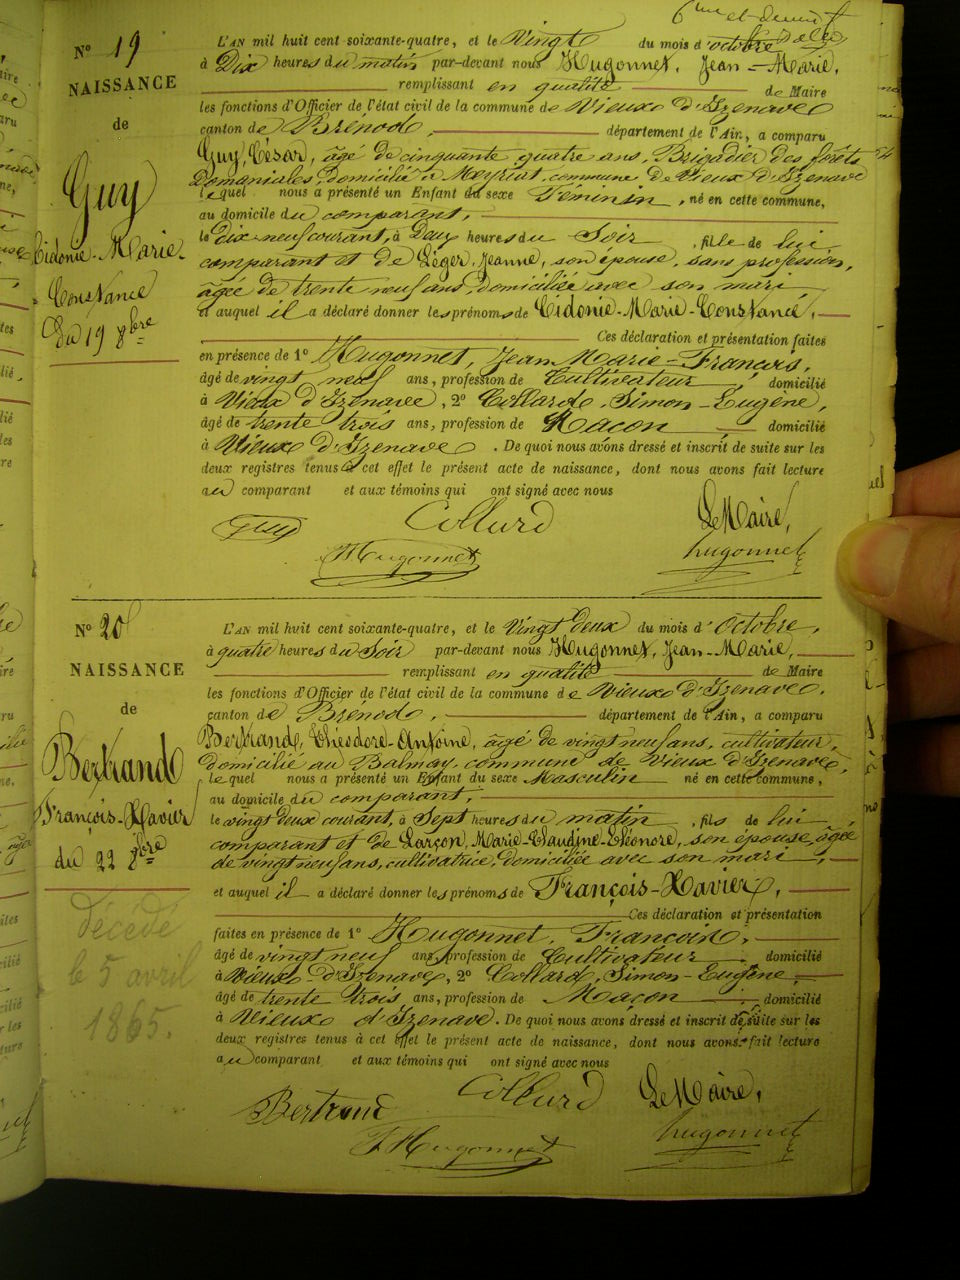 6me et dernier f
N° 19
NAISSANCE
de
Guy
Cidonie-Marie-
Constance
Du 19 8bre
L'AN mil huit cent soixante-quatre, et le Vingt du mois d'octobre
à Dix heures du matin par-devant nous Hugonnet, Jean-Marie,
remplissant en qualité de Maire
les fonctions d'Officier de l'état civil de la commune de Vieux d'Izenave
canton de Brénod, département de l'Ain, a comparu
Guy, César, âgé de cinquante quatre ans, Brigadier des forêts
Domaniales, domicilié à Meyriat, commune de Vieux d'Izenave
lequel nous a présenté un Enfant du sexe Féminin, né en cette commune,
au domicile du comparant,
le dix-neuf courant, à Deux heures du Soir, fille de lui,
comparant et de Léger, Jeanne, son épouse, sans profession,
âgée de trente neuf ans, domiciliée avec son mari
et auquel il a déclaré donner les prénoms de Cidonie-Marie-Constance,
Ces déclaration et présentation faites
en présence de 1° Hugonnet, Jean Marie-François,
âgé de vingt neuf ans, profession de Cultivateur, domicilié
à Vieux d'Izenave, 2° Collard, Simon-Eugène,
âgé de trente trois ans, profession de Maçon domicilié
à Vieux d'Izenave. De quoi nous avons dressé et inscrit de suite sur les
deux registres tenus à cet effet le présent acte de naissance, dont nous avons fait lecture
au comparant et aux témoins qui ont signé avec nous
Guy Collard Le Maire,
F. Hugonnet hugonnet
N° 20
NAISSANCE
de
Bertrand
François-Xavier
du 22 8bre
décédé
le 5 avril
1865.
L'AN mil huit cent soixante-quatre, et le Vingt deux du mois d'Octobre,
à quatre heures du Soir par-devant nous Hugonnet, Jean-Marie,
remplissant en qualité de Maire
les fonctions d'Officier de l'état civil de la commune de Vieux d'Izenave,
canton de Brénod, département de l'Ain, a comparu
Bertrand, Théodore-Antoine, âgé de vingt neuf ans, cultivateur,
domicilié au Balmay, commune de Vieux d'Izenave,
lequel nous a présenté un Enfant du sexe Masculin né en cette commune,
au domicile du comparant,
le vingt deux courant, à Sept heures du matin, fils de lui
comparant et de Larçon, Marie-Claudine-Eléonore, son épouse, âgée
de vingt neuf ans, cultivatrice, domiciliée avec son mari,
et auquel il a déclaré donner les prénoms de François-Xavier,
Ces déclaration et présentation
faites en présence de 1° Hugonnet, François,
âgé de vingt neuf ans, profession de Cultivateur domicilié
à Vieux d'Izenave, 2° Collard, Simon-Eugène,
âgé de trente trois ans, profession de Maçon domicilié
à Vieux d'Izenave. De quoi nous avons dressé et inscrit de suite sur les
deux registres tenus à cet effet le présent acte de naissance, dont nous avons fait lecture
au comparant et aux témoins qui ont signé avec nous
Bertrand Collard Le Maire,
F. Hugonnet hugonnet